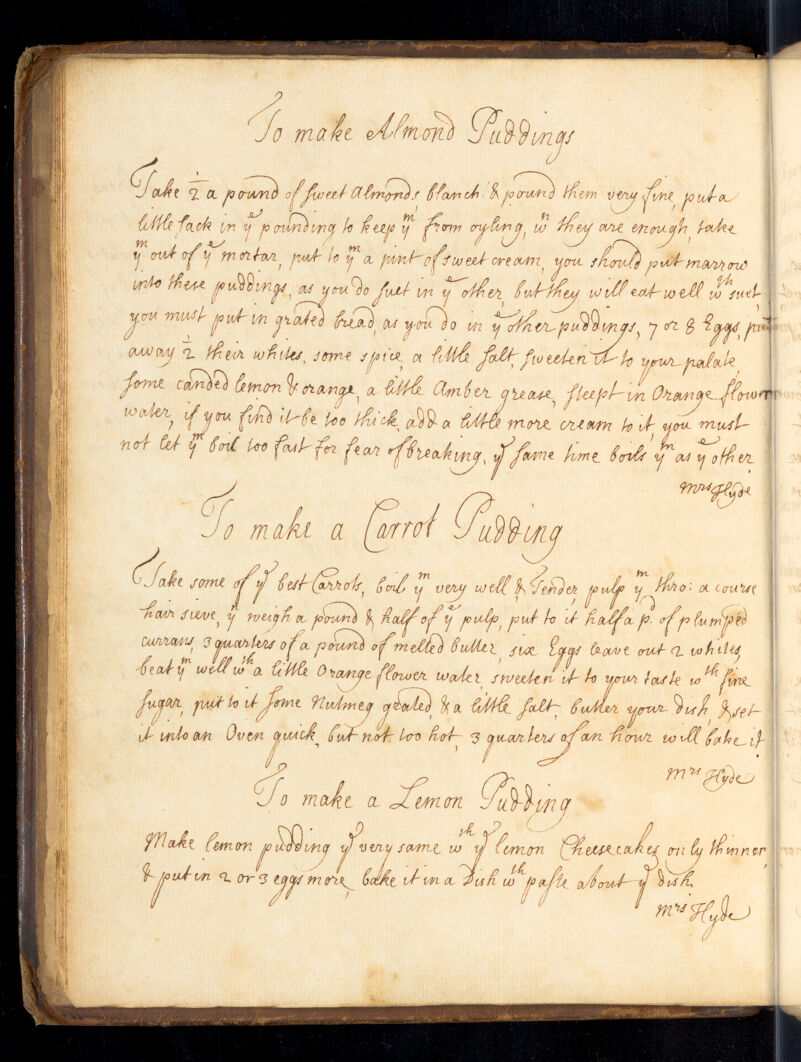 To make Almond Puddings
Take ½ a pound of sweet Almonds, blanch & pound them very fine, put a
little sack in yᵉ pounding to keep yᵐ from oyling, wⁿ they are enough, take
yᵐ out of yᵉ mortar, put to yᵐ a pint of sweet cream, you should put marrow
into these puddings, as you do suet in yᵉ other, but they will eat well wᵗʰ suet,
you must put in grated bread, as you do in yᵉ other puddings, 7 or 8 Eggs, put
away ½ their whites, some spice, a little salt, sweeten it to your palate,
some canded lemon & orange, a little Amber grease, steept in Orange flower
water, if you find it be too thick, add a little more cream to it, you must
not let yᵐ boil too fast for fear of breaking, yᵉ same time boils yᵐ as yᵉ other
Mrs Hyde
To make a Carrot Pudding
Take some of yᵉ best Carrots, boil yᵐ very well & Tender, pulp yᵐ thro: a course
hair sieve, yⁿ weigh a pound & half of yᵉ pulp, put to it half a pᵈ. of plumped
currans, 3 quarters of a pound of melled butter, six Eggs leave out 2 whites,
beat yᵐ well wᵗʰ a little Orange flower water, sweeten it to your taste wᵗʰ fine
sugar, put to it some Nutmeg grated, & a little salt, butter your dish, & set
it into an Oven quick, but not too hot, 3 quarters of an hour will bake it
Mʳˢ Hyde
To make a Lemon Pudding
Make lemon pudding yᵉ very same wᵗʰ yᵉ lemon Cheesecakes only thinner,
& put in 2 or 3 eggs more, bake it in a Dish wᵗʰ paste about yᵉ dish
Mʳˢ Hyde